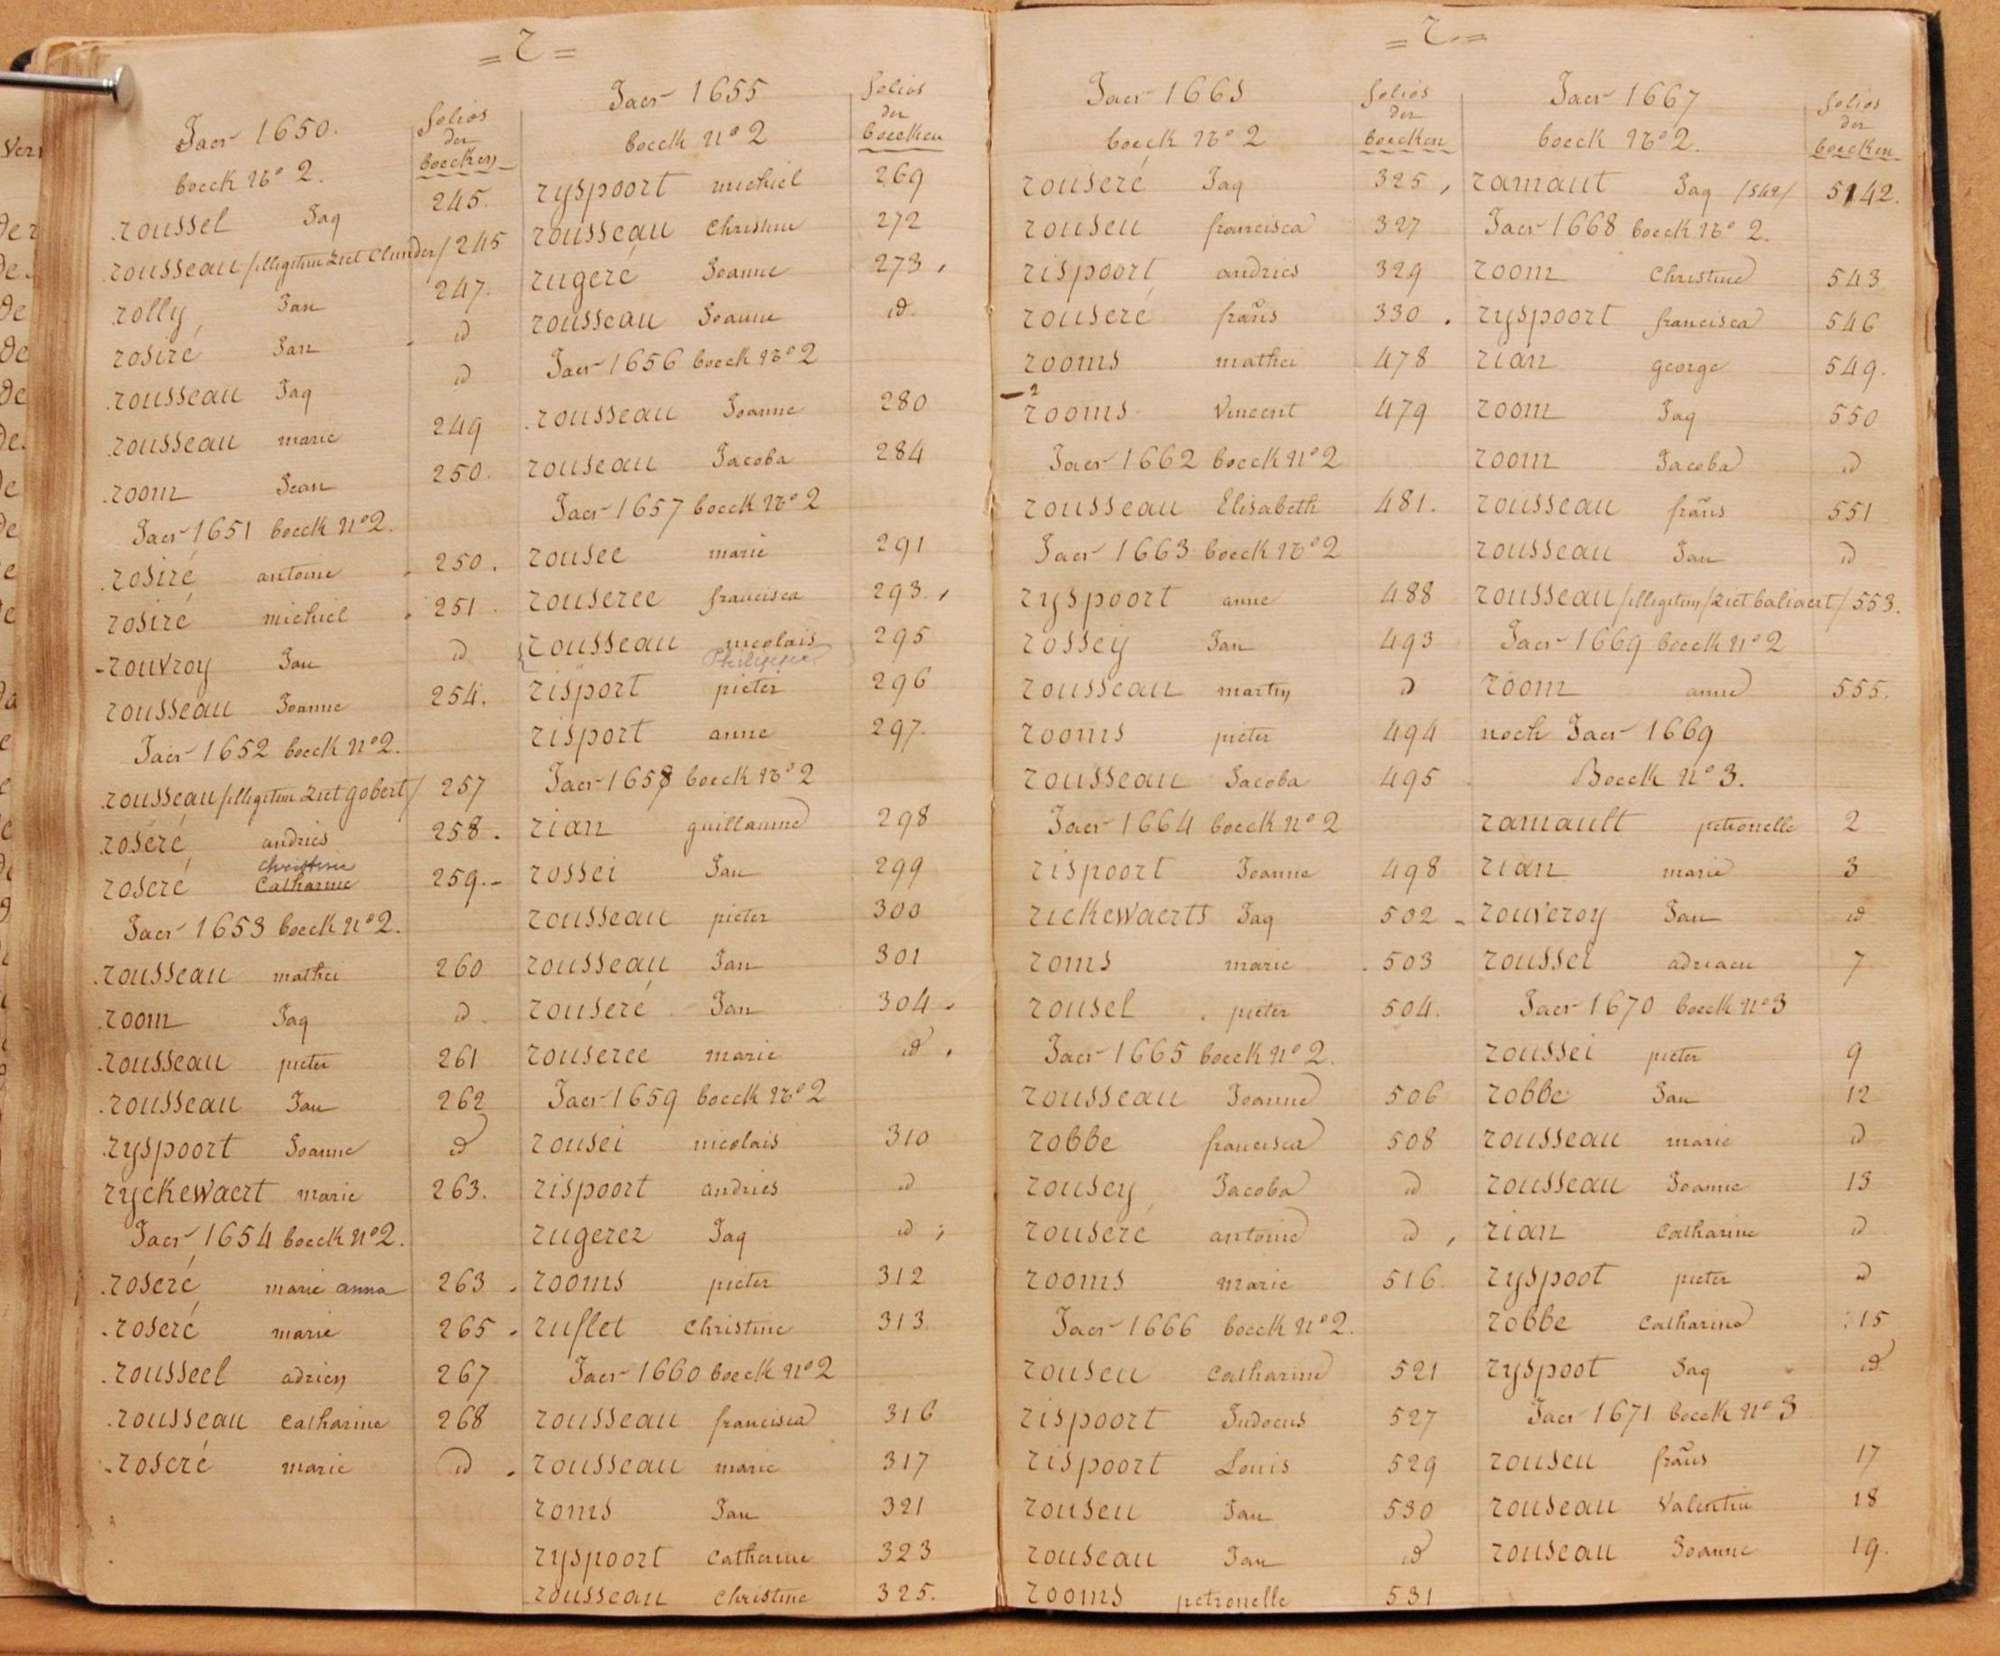 = r =
Jaer 1650.
boeck No 2.
folios
der
boecken
roussel Jaq 245.
rousseau /illegitim ziet Clunder/ 245
rolly Jan 247.
rosiré Jan id
rousseau Jaq id
rousseau marie 249
room Jean 250.
Jaer 1651 boeck No 2.
rosiré antoine 250.
rosiré michiel 251
rouvroy Jan id
rousseau Joanne 254.
Jaer 1652 boeck No 2.
rousseau /illegitim ziet gobert/ 257
roseré andries 258.
christine
roseré Catharine 259.
Jaer 1653 boeck No 2.
rousseau mathei 260
room Jaq id
rousseau pieter 261
rousseau Jan 262
ryspoort Joanne id
ryckewaert marie 263.
Jaer 1654 boeck No 2.
roseré marie anna 263
roseré marie 265
rousseel adrien 267
rousseau Catharine 268
roseré marie id
Jaer 1655
boeck No 2
folios
der
boecken
ryspoort michiel 269
rousseau Christine 272
rugeré Joanne 273
rousseau Joanne id.
Jaer 1656 boeck No 2
rousseau Joanne 280
rouseau Jacoba 284
Jaer 1657 boeck No 2
rousee marie 291
rouseree francisca 293.
rousseau nicolais 295
Philippe
risport pieter 296
risport anne 297.
Jaer 1658 boeck No 2
rian guillaume 298
rossei Jan 299
rousseau pieter 300
rousseau Jan 301
rouseré Jan 304
rouseree marie id
Jaer 1659 boeck No 2
rousei nicolais 310
rispoort andries id
rugerez Jaq id
rooms pieter 312
ruflet Christine 313
Jaer 1660 boeck No 2
rousseau francisca 316
rousseau marie 317
roms Jan 321
ryspoort Catherine 323
rousseau Christine 325.
= r =
Jaer 1661
boeck No 2
folios
der
boecken
rouseré Jaq 325
rouseu francisca 327
rispoort andries 329
rouseré frans 330
rooms mathei 478
rooms Vincent 479
Jaer 1662 boeck No 2
rousseau Elisabeth 481.
Jaer 1663 boeck No 2
ryspoort anne 488
rossey Jan 493
rousseau martin id
rooms pieter 494
rousseau Jacoba 495
Jaer 1664 boeck No 2
rispoort Joanne 498
rickewaerts Jaq 502
roms marie 503
rousel pieter 504.
Jaer 1665 boeck No 2.
rousseau Joanne 506
robbe francisca 508
rousey Jacoba id
rouseré antoine id
rooms marie 516.
Jaer 1666 boeck No 2.
rouseu Catharine 521
rispoort Judocus 527
rispoort Louis 529
rouseu Jan 530
rouseau Jan id
rooms petronelle 531
Jaer 1667
boeck No 2.
folios
der
boecken
ramaut Jaq /542/ 5142.
Jaer 1668 boeck No 2.
room Christine 543
ryspoort francisca 546
rian george 549.
room Jaq 550
room Jacoba id
rousseau frans 551
rousseau Jan id
rousseau /illegitim/ziet baliaert/ 553.
Jaer 1669 boeck No 2
room anne 555.
noch Jaer 1669
Boeck No 3.
ramault petronelle 2
rian marie 3
rouveroy Jan id
roussel adriaen 7
Jaer 1670 boeck No 3
roussei pieter 9
robbe Jan 12
rousseau marie id
rousseau Joanne 13
rian Catharine id
ryspoot pieter id
robbe Catharine 15
ryspoot Jaq id
Jaer 1671 boeck No 3
rouseu frans 17
rouseau Valentin 18
rouseau Joanne 19.